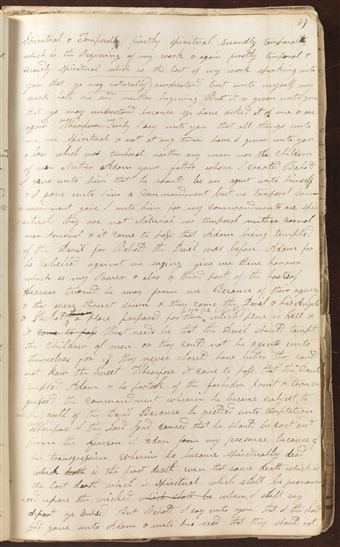 39
Spiritual & Temporal firstly spiritual secondly temporal
which is the Begining of my work & again firstly temporal &
secondly spiritual which is the last of my work speaking unto
you that ye may naturally understand but unto myself my
work hath no end neither begining But it is given unto you
that ye may understand because ye have asked it of me & are
agreed Wherefore Verily I say unto you that all things unto
me are Spiritual & not at any time have I given unto you
a law which was temporal neither any man nor the Children
of men Neither Adam your father whom I created Behold
I gave unto him that he should be an agent unto himself
& I gave unto him a Commandment but no temporal com-
mandment gave I unto him for my Commandments are sp-
iritual they are not Natural nor temporal neither carnal
nor sensual & it came to pass that Adam being tempted
of the Devil for Behold the Devil was before Adam for
he rebelled against me saying give me thine honour
which is my Power & also a third part of the host of
Heaven turned he away from me Because of their agency
& they were thrust down & thus came the Devil & his Angels
& Behold a place prepared for them which place is hell &
it must needs be that the Devil should tempt
the children of men or they could not be agents unto
themselves for if they never should have bitter they could
not know the Sweet Wherefore it came to pass that the Devil
tempted Adam & he partook of the forbidden fruit & transg-
ressed the commandment wherein he became subject to
the will of the Devil Because he yielded unto temptation
Wherefore I the Lord God caused that he should be cast out
from the Garden of Eden from my presence because of
his transgression wherein he became spiritually dead
which is the first death even that same death which is
the last death which is spiritual which shall be pronoun-
ced upon the wicked when I shall say
depart ye cursed But Behold I say unto you that I the Lord
God gave unto Adam & unto his seed that they should not